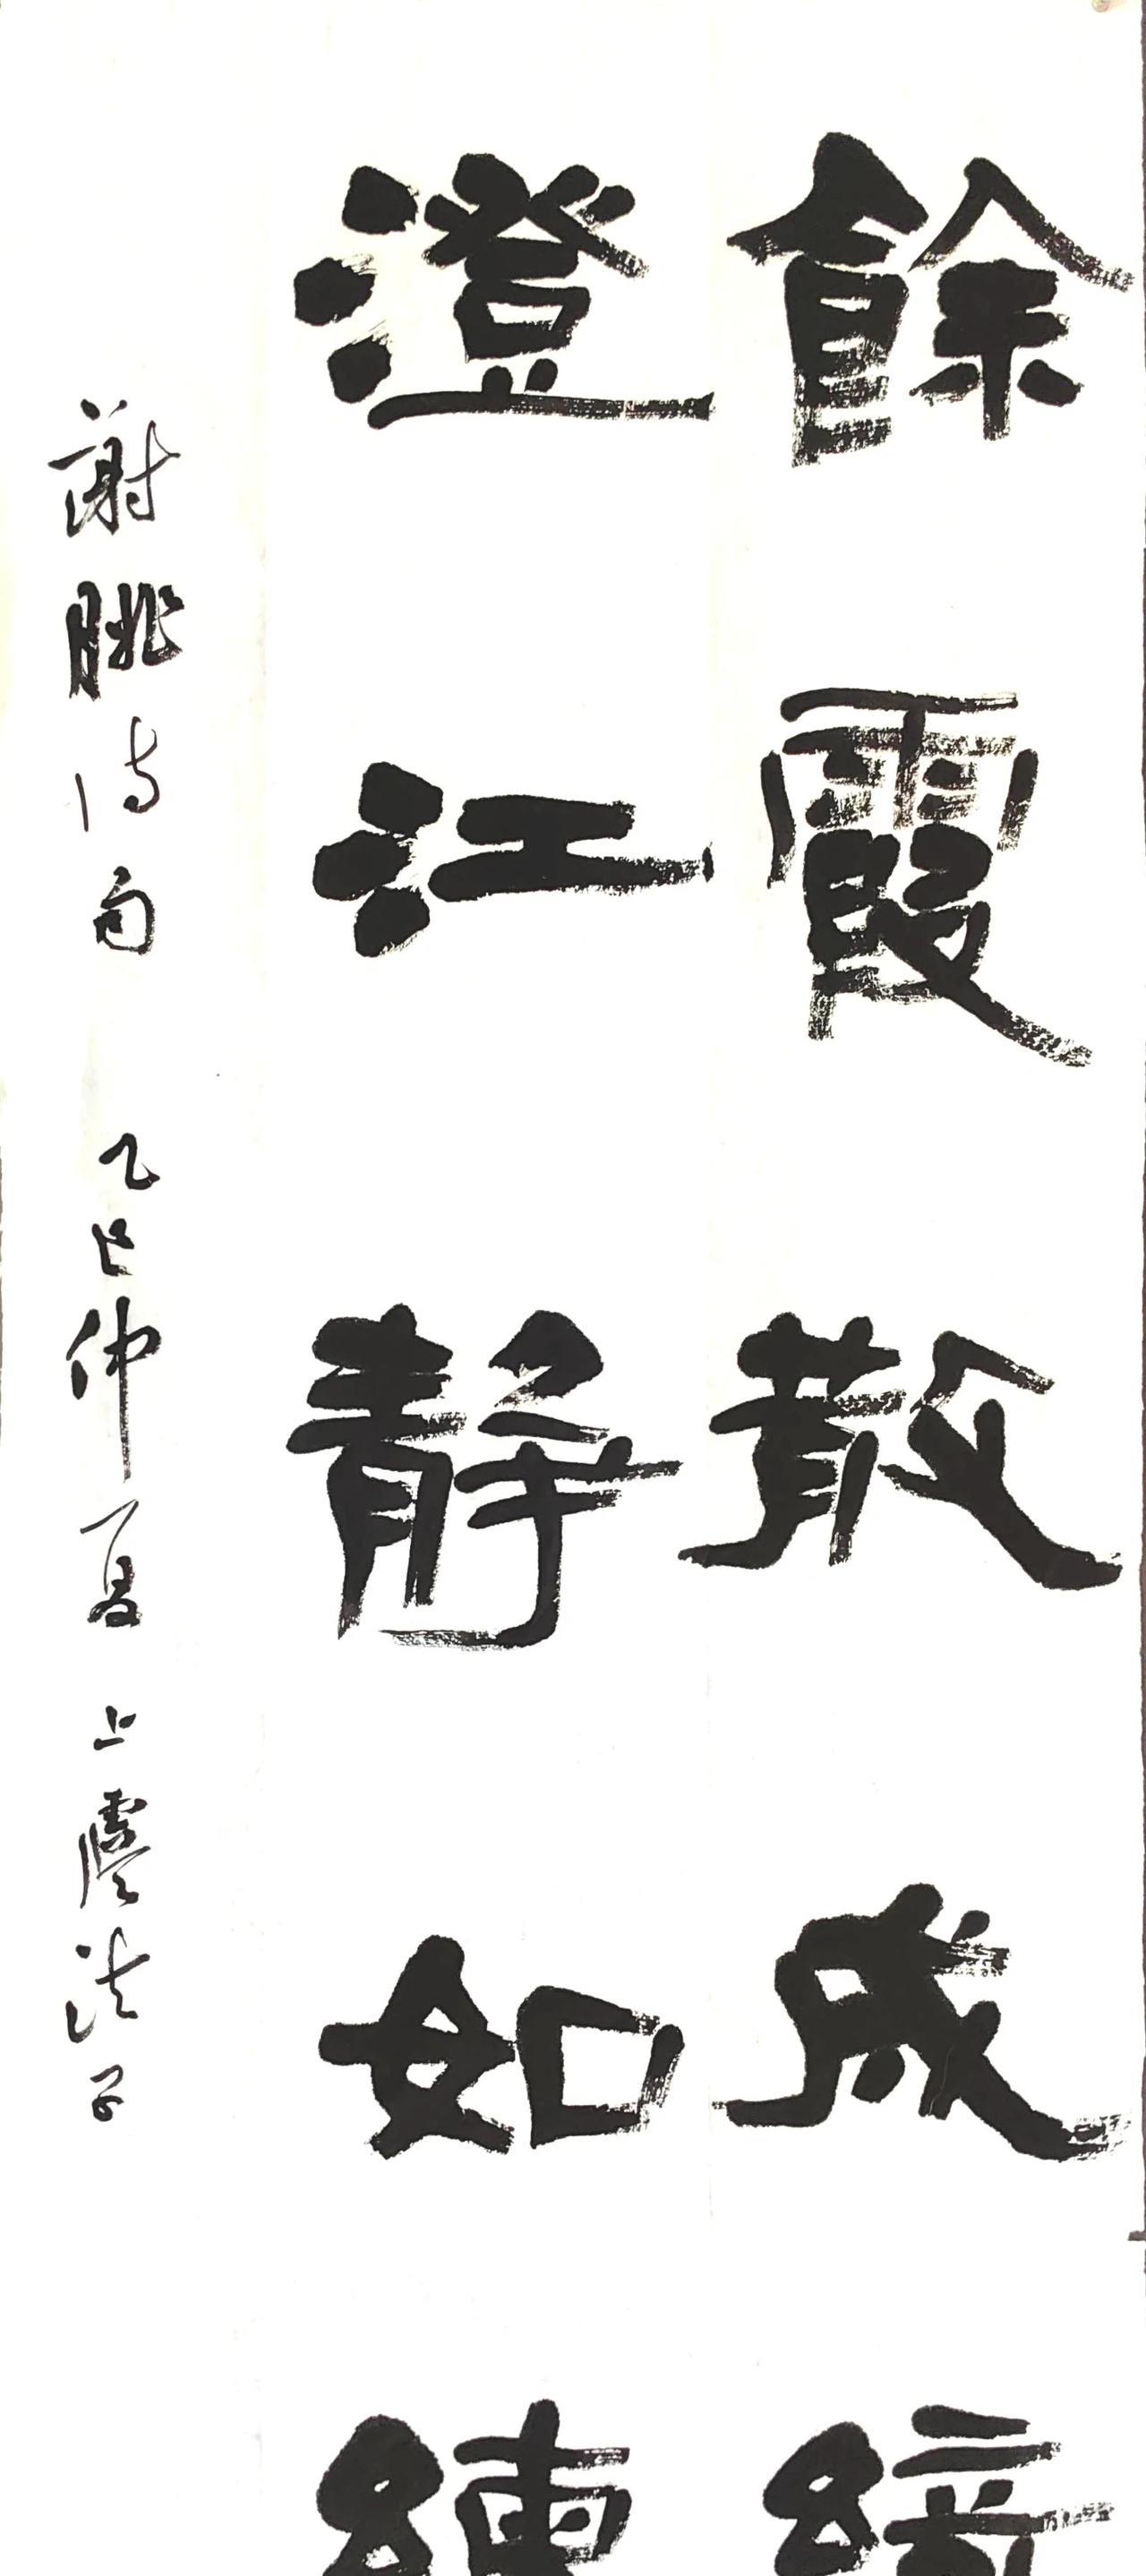 餘霞散成綺
澄江靜如練
謝朓詩句 乙巳仲夏 上虞法子